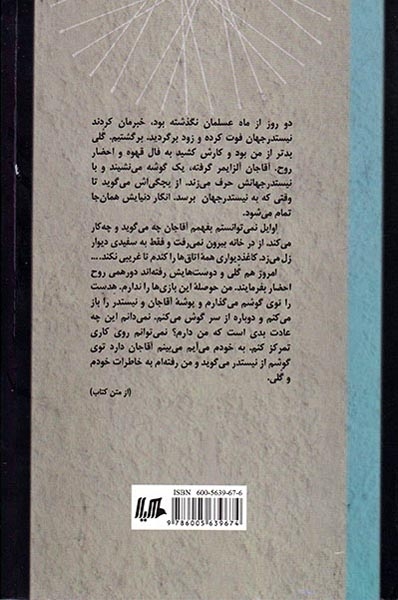 دو روز از ماه عسلمان نگذشته بود، خبرمان کردند
نیستدرجهان فوت کرده و زود برگردید. برگشتیم. گلی
بدتر از من بود و کارش کشید به فال قهوه و احضار
روح. آقاجان آلزایمر گرفته، یک گوشه می‌نشیند و با
نیستدرجهانش حرف می‌زند. از بچگی‌اش می‌گوید تا
وقتی که به نیستدرجهان برسد. انگار دنیایش همان‌جا
تمام می‌شود.
اوایل نمی‌توانستم بفهمم آقاجان چه می‌گوید و چه‌کار
می‌کند. از در خانه بیرون نمی‌رفت و فقط به سفیدی دیوار
زل می‌زد. کاغذدیواری همهٔ اتاق‌ها را کندم تا غریبی نکند....
امروز هم گلی و دوست‌هایش رفته‌اند دورهمی روح
احضار بفرمایند. من حوصلهٔ این بازی‌ها را ندارم. هدست
را توی گوشم می‌گذارم و پوشهٔ آقاجان و نیستدر را باز
می‌کنم و دوباره از سر گوش می‌کنم. نمی‌دانم این چه
عادت بدی است که من دارم؟ نمی‌توانم روی کاری
تمرکز کنم. به خودم می‌آیم می‌بینم آقاجان دارد توی
گوشم از نیستدر می‌گوید و من رفته‌ام به خاطرات خودم
و گلی.
(از متن کتاب)
ISBN 600-5639-67-6
هیلا
9 786005 639674